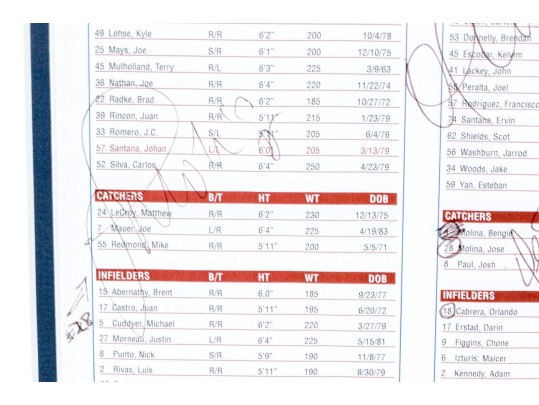 49 Lohse, Kyle R/R 6'2" 200 10/4/78
25 Mays, Joe S/R 6'1" 200 12/10/75
45 Mulholland, Terry R/L 6'3" 225 3/9/63
36 Nathan, Joe R/R 6'4" 220 11/22/74
22 Radke, Brad R/R 6'2" 185 10/27/72
39 Rincon, Juan R/R 5'11" 215 1/23/79
33 Romero, J.C. S/L 5'11" 205 6/4/76
57 Santana, Johan L/L 6'0" 205 3/13/79
52 Silva, Carlos R/R 6'4" 250 4/23/79
CATCHERS B/T HT WT DOB
24 LeCroy, Matthew R/R 6'2" 230 12/13/75
7 Mauer, Joe L/R 6'4" 225 4/19/83
55 Redmond, Mike R/R 5'11" 200 5/5/71
INFIELDERS B/T HT WT DOB
15 Abernathy, Brent R/R 6,0" 185 9/23/77
17 Castro, Juan R/R 5'11" 195 6/20/72
5 Cuddyer, Michael R/R 6'2" 220 3/27/79
27 Morneau, Justin L/R 6'4" 225 5/15/81
8 Punto, Nick S/R 5'9" 190 11/8/77
2 Rivas, Luis R/R 5'11" 190 8/30/79
53 Donnelly, Brendan
45 Escobar, Kelvim
41 Lackey, John
58 Peralta, Joel
57 Rodriguez, Francisco
74 Santana, Ervin
62 Shields, Scot
56 Washburn, Jarrod
34 Woods, Jake
59 Yan, Esteban
CATCHERS
Molina, Bengie
28 Molina, Jose
8 Paul, Josh
INFIELDERS
18 Cabrera, Orlando
17 Erstad, Darin
9 Figgins, Chone
6 Izturis, Maicer
2 Kennedy, Adam